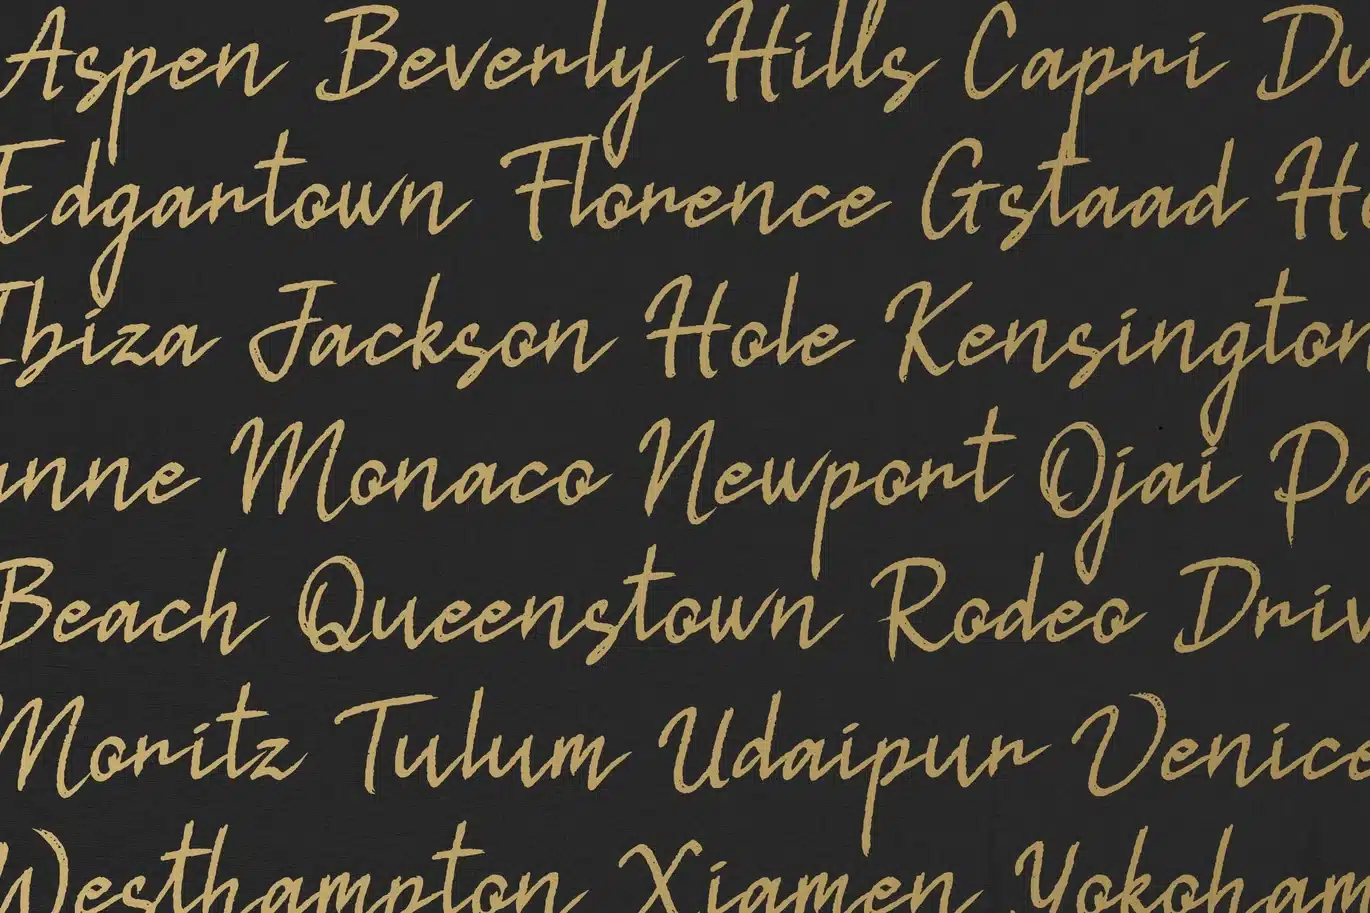 Aspen Beverly Hills Capri Du
Edgartown Florence Gstaad Ho
Ibiza Jackson Hole Kensington
anne Monaco Newport Ojai Pa
Beach Queenstown Rodeo Driv
Moritz Tulum Udaipur Venice
Westhampton Xiamen Yokoham